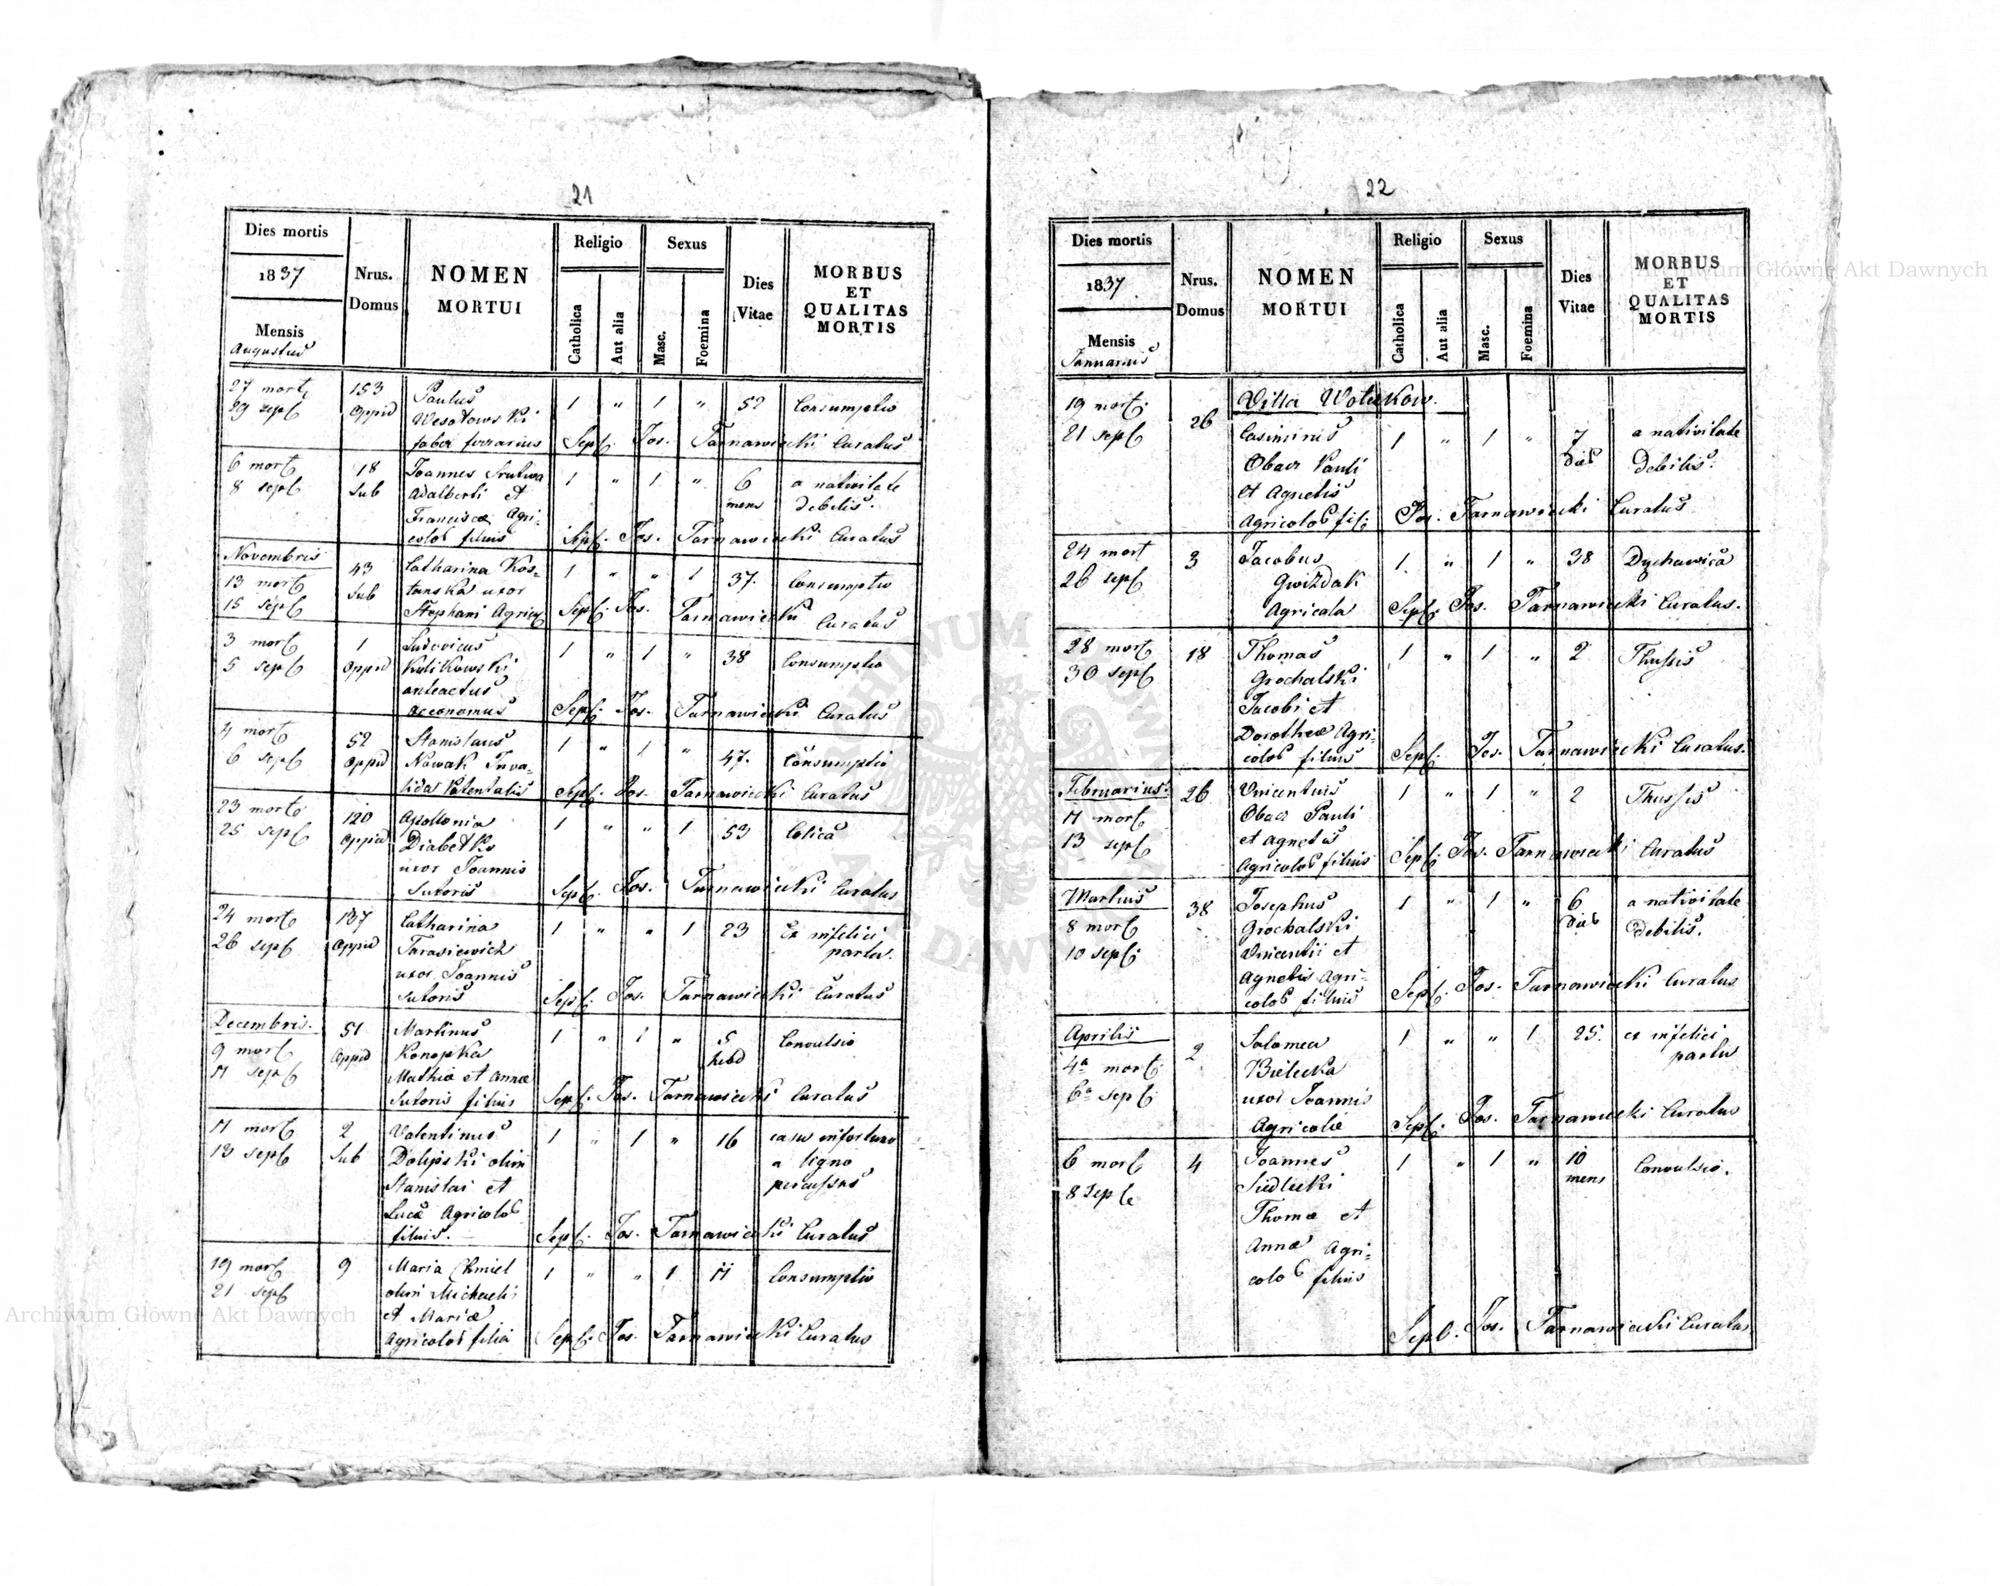 21
Dies mortis
1837
Mensis
Augustus
Nrus.
Domus
NOMEN
MORTUI
Religio
Catholica
Aut alia
Sexus
Masc.
Foemina
Dies
Vitae
MORBUS
ET
QUALITAS
MORTIS
27 mort 153 Paulus 1 " 1 " 52 Consumptio
29 sepl Oppid Wesołowski
faber ferrarius Sepl. Jos. Tarnawiecki Curatus
6 mort 18 Joannes 1 " 1 " 6 a nativitate
8 sepl Sub Adalberti et mens debilis.
Franciscæ Agri-
colaˢ filius Sepl. Jos. Tarnawiecki Curatus
Novembris
13 mort 43 Catharina Kos- 1 " " 1 37. Consumptio
15 sepl Sub tanska uxor
Stephani Agricol Sepl. Jos. Tarnawiecki Curatus
3 mort 1 Ludovicus 1 " 1 " 38 Consumptio
5 sepl Oppid Kulikowski
anteactus
oeconomus Sepl. Jos. Tarnawiecki Curatus
4 mort 52 Stanislaus 1 " 1 " 47. Consumptio
6 sepl Oppid Nowak Inva-
lidus Patentalis Sepl. Jos. Tarnawiecki Curatus
23 mort 120 Apollonia 1 " " 1 53 Colica
25 sepl Oppid
uxor Joannis
Sutoris Sepl. Jos. Tarnawiecki Curatus
24 mort 137 Catharina 1 " " 1 23 Ex infelici
26 sepl Oppid Tarasiewich partu.
uxor Joannis
Sutoris Sepl. Jos. Tarnawiecki Curatus
Decembris.
9 mort 51 Martinus 1 " 1 " 5 Convulsio
11 sepl Oppid Konopka hebd
Mathiæ et Annæ
Sutoris filius Sepl. Jos. Tarnawiecki Curatus
11 mort 2 Valentinus 1 " 1 " 16 casu infortuno
13 sepl Sub Dolipski olim a ligno
Stanislai et percussus
Luciæ Agricolaˢ
filius. Sepl. Jos. Tarnawiecki Curatus
19 mort 9 Maria Chmiel 1 " " 1 11 Consumptio
21 sepl olim Michaelis
et Mariæ
Agricolaˢ filia Sepl. Jos. Tarnawiecki Curatus
22
Dies mortis
1837
Mensis
Januarius
Nrus.
Domus
NOMEN
MORTUI
Religio
Catholica
Aut alia
Sexus
Masc.
Foemina
Dies
Vitae
MORBUS
ET
QUALITAS
MORTIS
Villa Wolukow.
19 mort 26 Casimirus 1 " 1 " 7 a nativitate
21 sepl Obacz Pauli dies debilis.
et Agnetis
Agricolaˢ fil: Jos. Tarnawiecki Curatus
24 mort 3 Jacobus 1 " 1 " 38 Dychawica
26 sepl Gwiżdak
Agricola Sepl. Jos. Tarnawiecki Curatus.
28 mort 18 Thomas 1 " 1 " 2 Thussis
30 sepl Grochalski
Jacobi et
Dorotheæ Agri-
colaˢ filius Sepl. Jos. Tarnawiecki Curatus.
Februarius.
11 mort 26 Vincentius 1 " 1 " 2 Thussis
13 sepl Obacz Pauli
et Agnetis
Agricolaˢ filius Sepl. Jos. Tarnawiecki Curatus
Martius
8 mort 38 Josephus 1 " 1 " 6 a nativitate
10 sepl. Grochalski dies debilis.
Vincentii et
Agnetis Agri-
colaˢ filius Sepl. Jos. Tarnawiecki Curatus
Aprilis
4ª mort. 2 Salomea 1 " " 1 25. ex infelici
6ª sepl. Bielecka partu
uxor Joannis
Agricolæ Sepl. Jos. Tarnawiecki Curatus
6 mort 4 Joannes 1 " 1 " 10 Convulsio.
8 Sepl Siedlecki mens
Thomæ et
Annæ Agri-
colaˢ filius
Sepl. Jos. Tarnawiecki Curatus
Archiwum Główne Akt Dawnych
Archiwum Główne Akt Dawnych